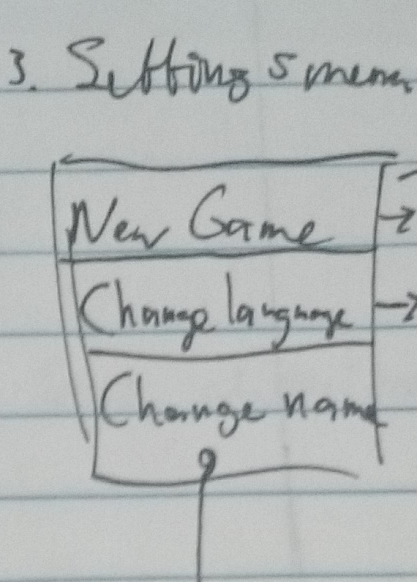 3. Settings menu
New Game
Change language
Change name